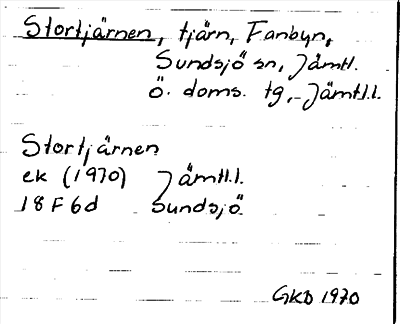 Stortjärnen, tjärn, Fanbyn,
Sundsjö sn, Jämtl.
Ö. doms. tg, Jämtl.l.
Stortjärnen
ek (1970) Jämtl.l.
18F6d Sundsjö
GKD 1970